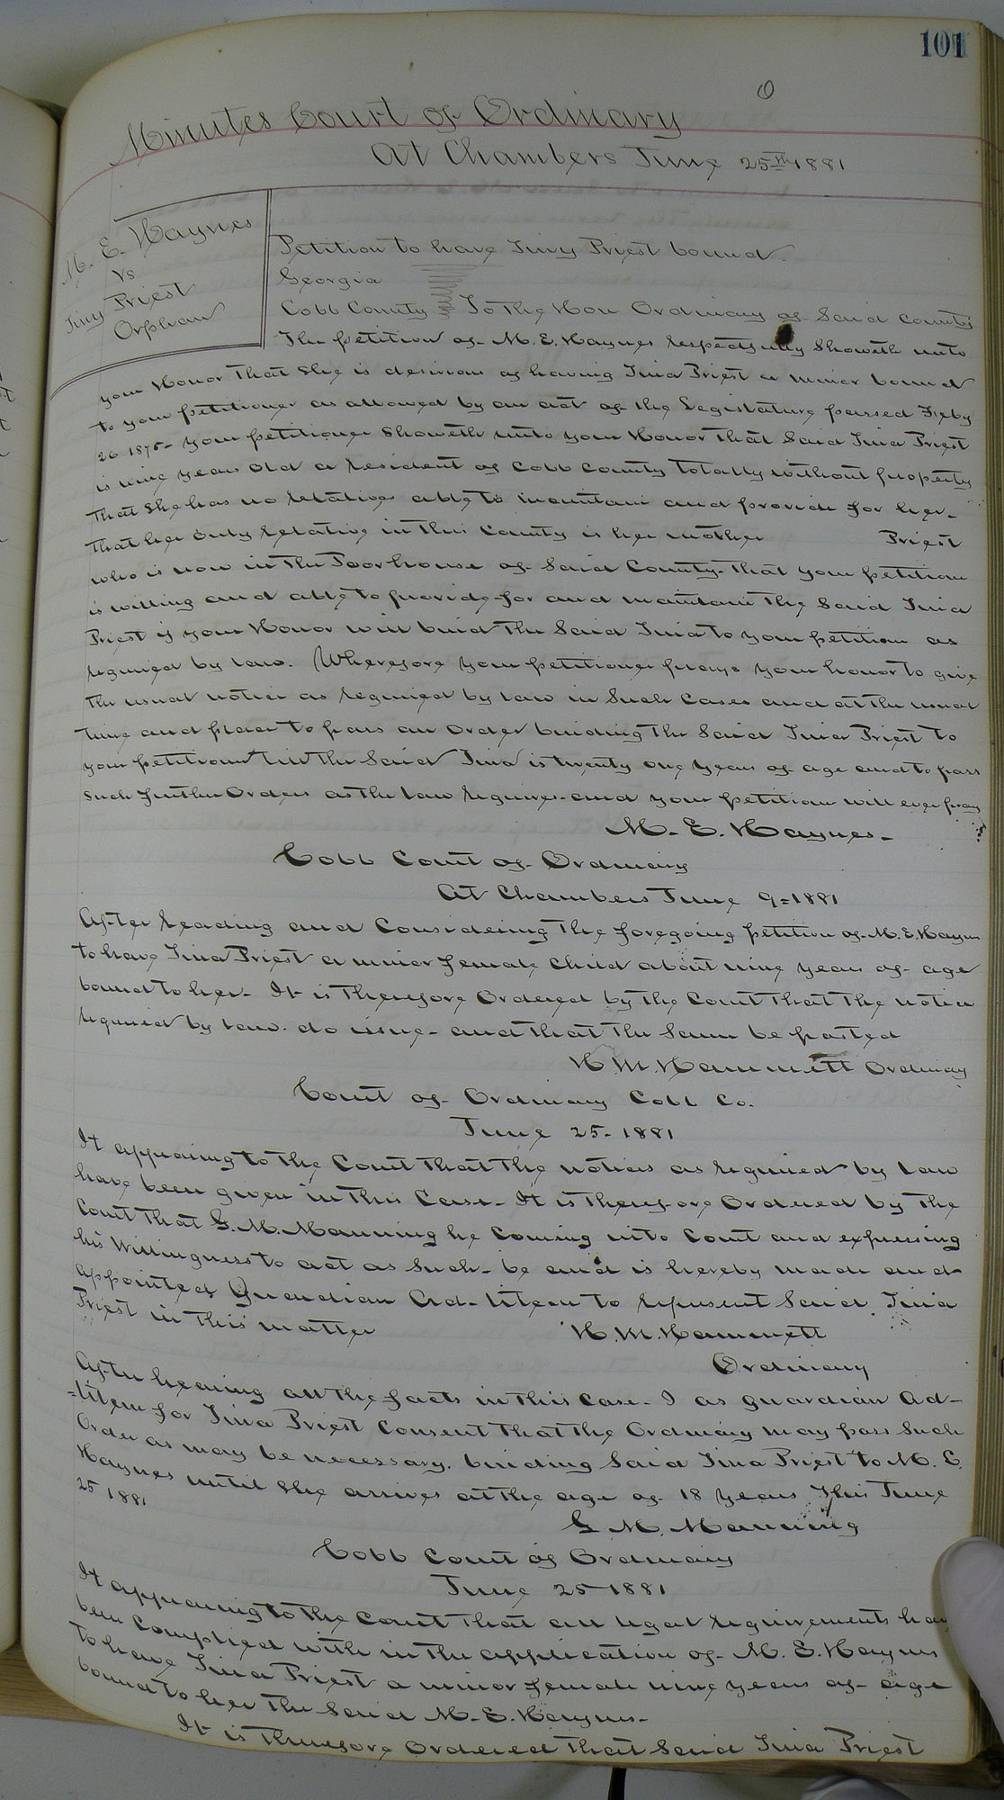 101
Minutes Court of Ordinary
At Chambers June 25th 1881
M. E. Haynes
vs
Tiny Priest
Orphan
Petition to have Tiny Priest bound.
Georgia
Cobb County To the Hon Ordinary of Said County
The petition of M. E. Haynes respectfully Showeth unto
your Honor that She is desirous of having Tina Priest a minor bound
to your petitioner as allowed by an act of the Legislature passed Feby
26 1875- your petitioner Showeth unto your Honor that Said Tina Priest
is nine years old a resident of Cobb County totally without property
that she has no relatives able to maintain and provide for her-
that her only relative in this County is her mother Priest
who is now in the Poor house of Said County. that your petitioner
is willing and able to provide for and maintain the Said Tina
Priest if your Honor will bind the Said Tina to your petition as
required by law. Wherefore your petitioner prays your honor to give
the usual notice as required by law in Such Cases and at the usual
time and place to pass an Order binding the Said Tina Priest to
your petitioner till the Said Tina is twenty one years of age and to pass
such further Orders as the law requires and your petition will ever pray
M. E. Haynes-
Cobb Court of Ordinary
At Chambers June 9-1881
After reading and Considering the foregoing petition of M. E. Haynes
to have Tina Priest a minor female child about nine years of age
bound to her- It is therefore Ordered by the Court that the notice
required by law. do issue- and that the Same be posted
H. M. Hammett Ordinary
Court of Ordinary Cobb Co.
June 25-1881
It appearing to the Court that the notices as required by law
have been given in this Case- It is therefore Ordered by the
Court that G. M. Manning he Coming into Court and expressing
his Willingness to act as Such- be and is hereby made and
appointed Guardian Ad-litem to represent Said Tina
Priest in this matter
H. M. Hammett
Ordinary
After hearing all the facts in this Case. I as guardian Ad-
-litem for Tina Priest Consent that the Ordinary may pass Such
Order as may be necessary. binding Said Tina Priest to M. E.
Haynes until She arrives at the age of 18 years This June
25 1881
G. M. Manning
Cobb Court of Ordinary
June 25 1881
It appearing to the Court that all legal requirements have
been Complied with in the application of M. E. Haynes
to have Tina Priest a minor female nine years of age
bound to her the Said M. E. Haynes-
It is therefore Ordered that Said Tina Priest